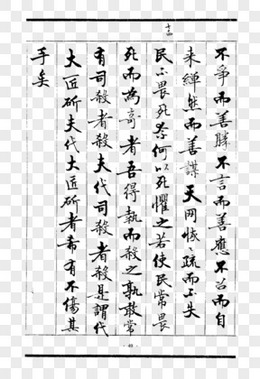 十二
不争而善勝不言而善應不召而自
来繟然而善謀天网恢恢疏而不失
民不畏死奈何以死懼之若使民常畏
死而為奇者吾得執而殺之孰敢常
有司殺者殺夫代司殺者殺是謂代
大匠斫夫代大匠斫者希有不傷其
手矣